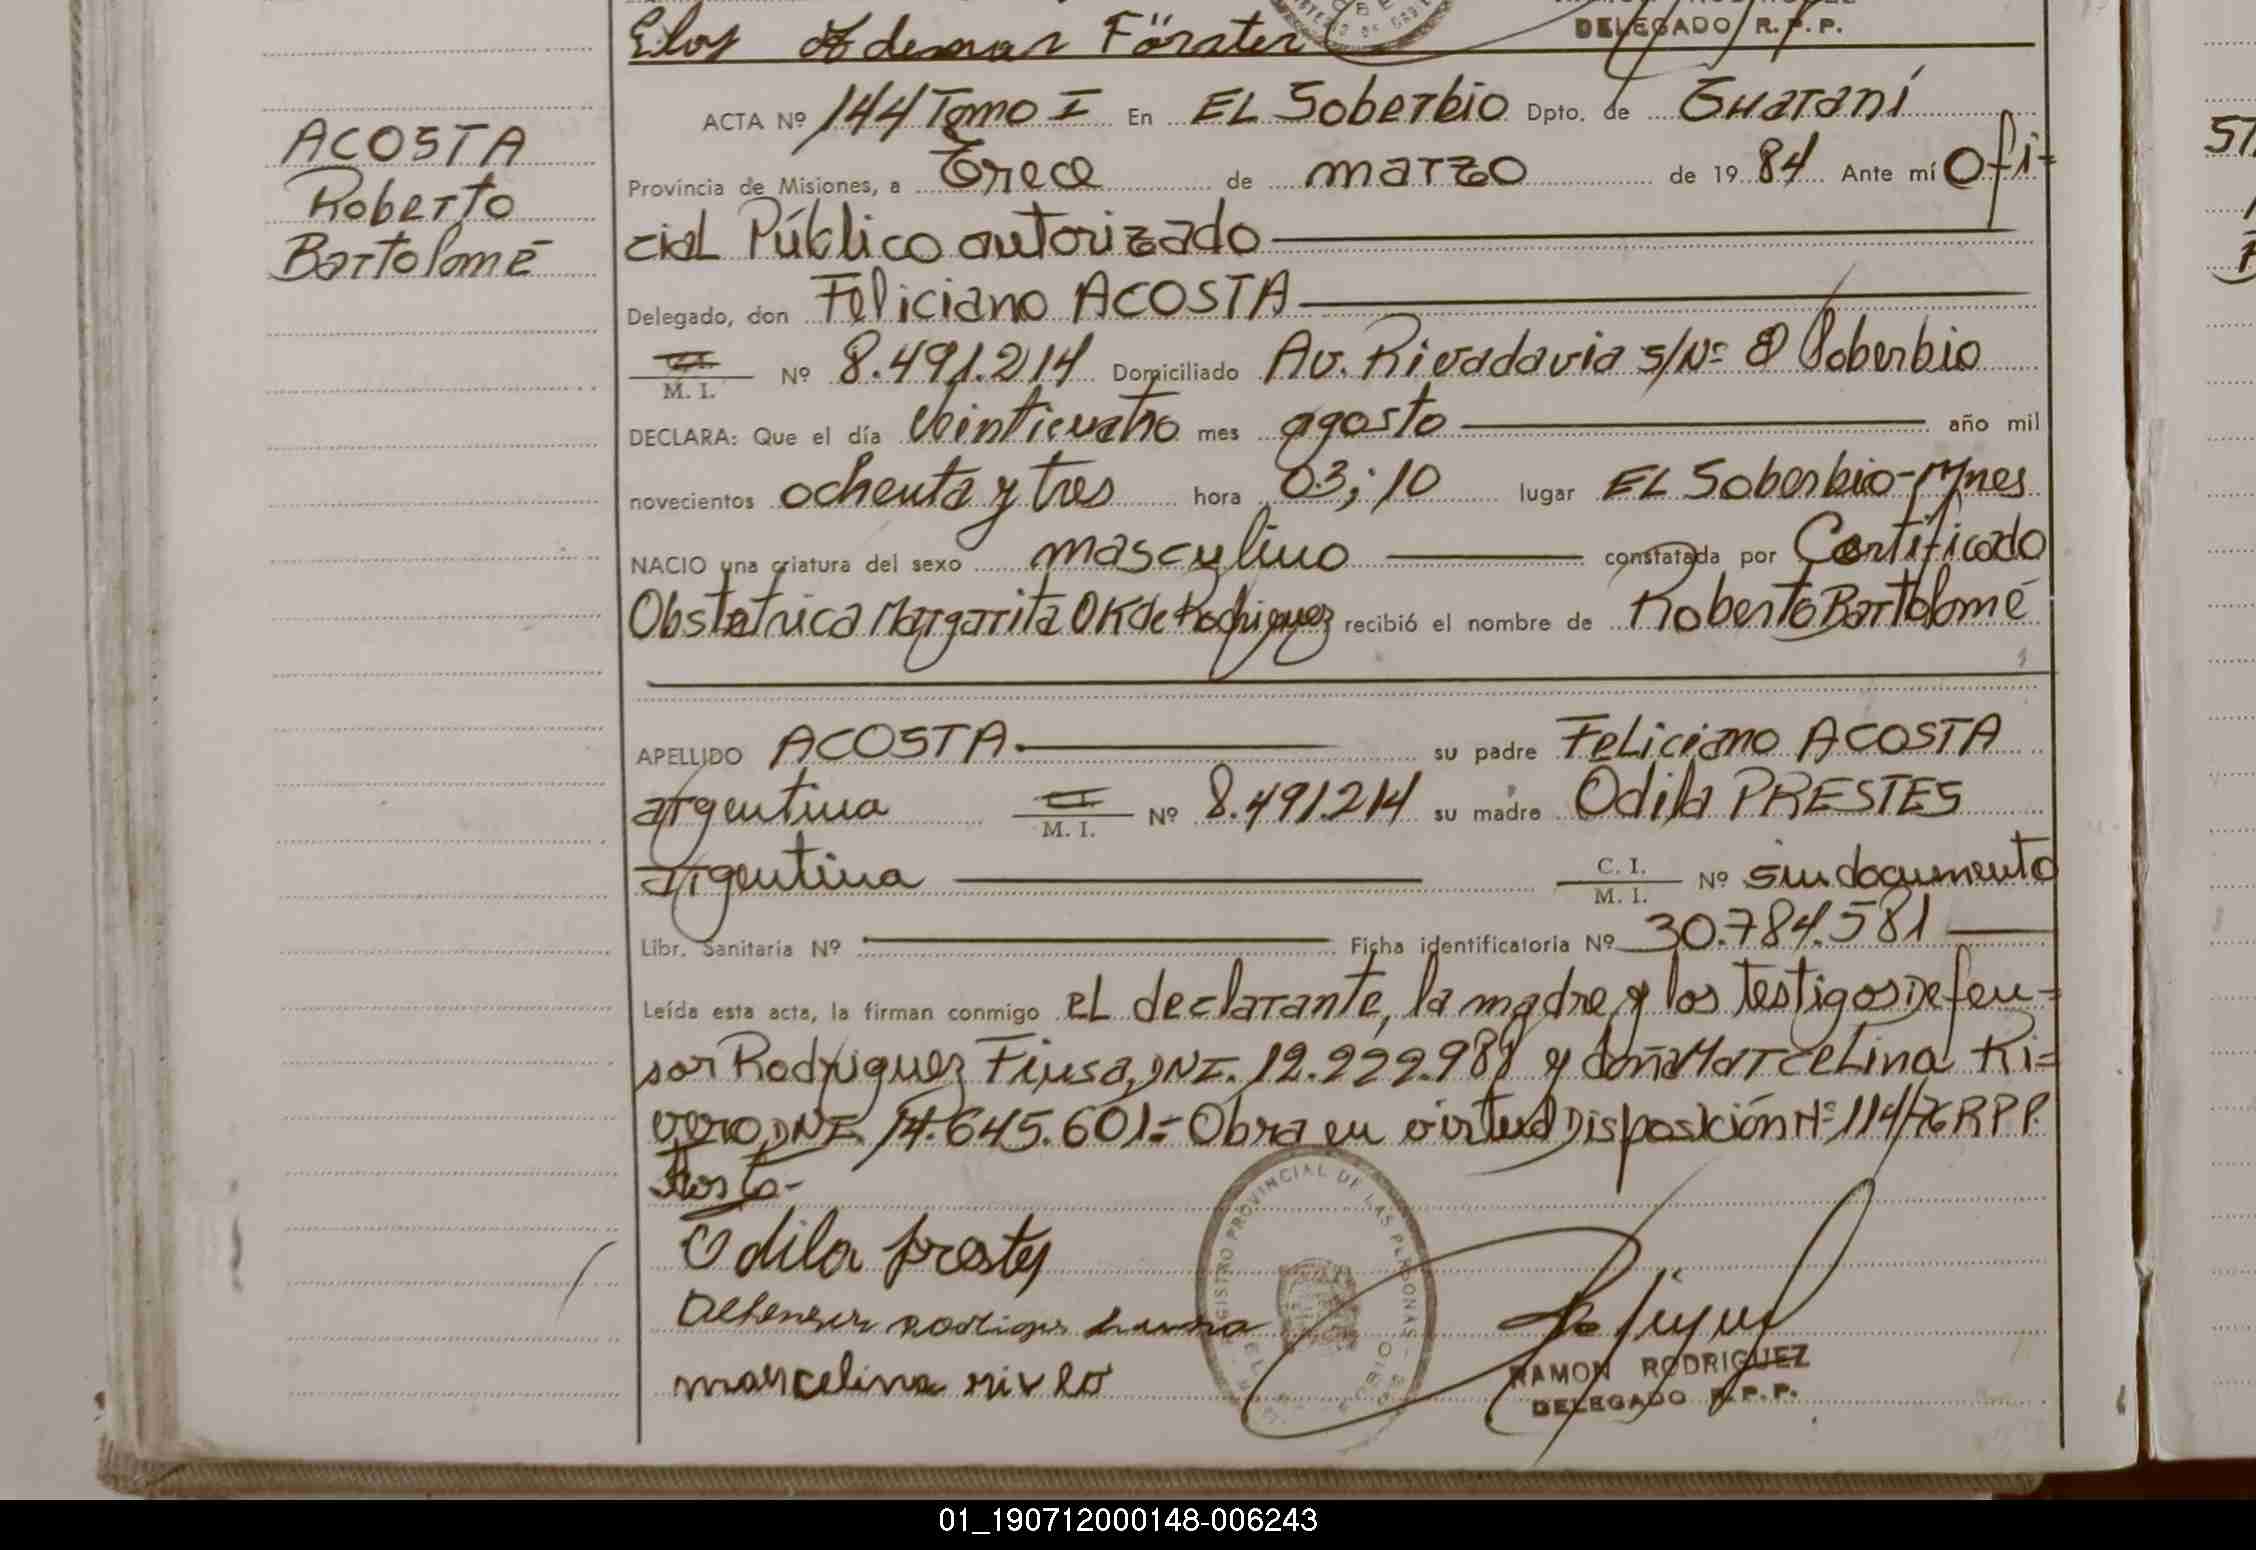 Eloy Ademar Förster
DELEGADO R.P.P.
ACOSTA
Roberto
Bartolomé
ACTA Nº 144 Tomo I En EL Soberbio Dpto. de Guaraní
Provincia de Misiones, a Trece de marzo de 19 84 Ante mí Ofi=
cial Público autorizado
Delegado, don Feliciano ACOSTA
M. I. Nº 8.491.214 Domiciliado Av. Rivadavia s/Nº El Soberbio
DECLARA: Que el día veinticuatro mes agosto año mil
novecientos ochenta y tres hora 03;10 lugar EL Soberbio-Mnes
NACIO una criatura del sexo masculino constatada por Certificado
Obstetrica Margarita OK de Rodriguez recibió el nombre de Roberto Bartolomé
APELLIDO ACOSTA su padre Feliciano ACOSTA
argentina C.I. M. I. Nº 8.491.214 su madre Odila PRESTES
argentina C. I. M. I. Nº sin documento
Libr. Sanitaria Nº Ficha identificatoria Nº 30.784.581
Leída esta acta, la firman conmigo el declarante, la madre y los testigos Defen=
sor Rodriguez Fiusa, DNI. 12.222.988 y doña Marcelina Ri=
vero, DNI. 14.645.601= Obra en virtud Disposición Nº 114/76 RPP.
Odila prestes
marcelina rivero
REGISTRO PROVINCIAL DE LAS PERSONAS
EL SOBERBIO
RAMON RODRIGUEZ
DELEGADO R.P.P.
01_190712000148-006243